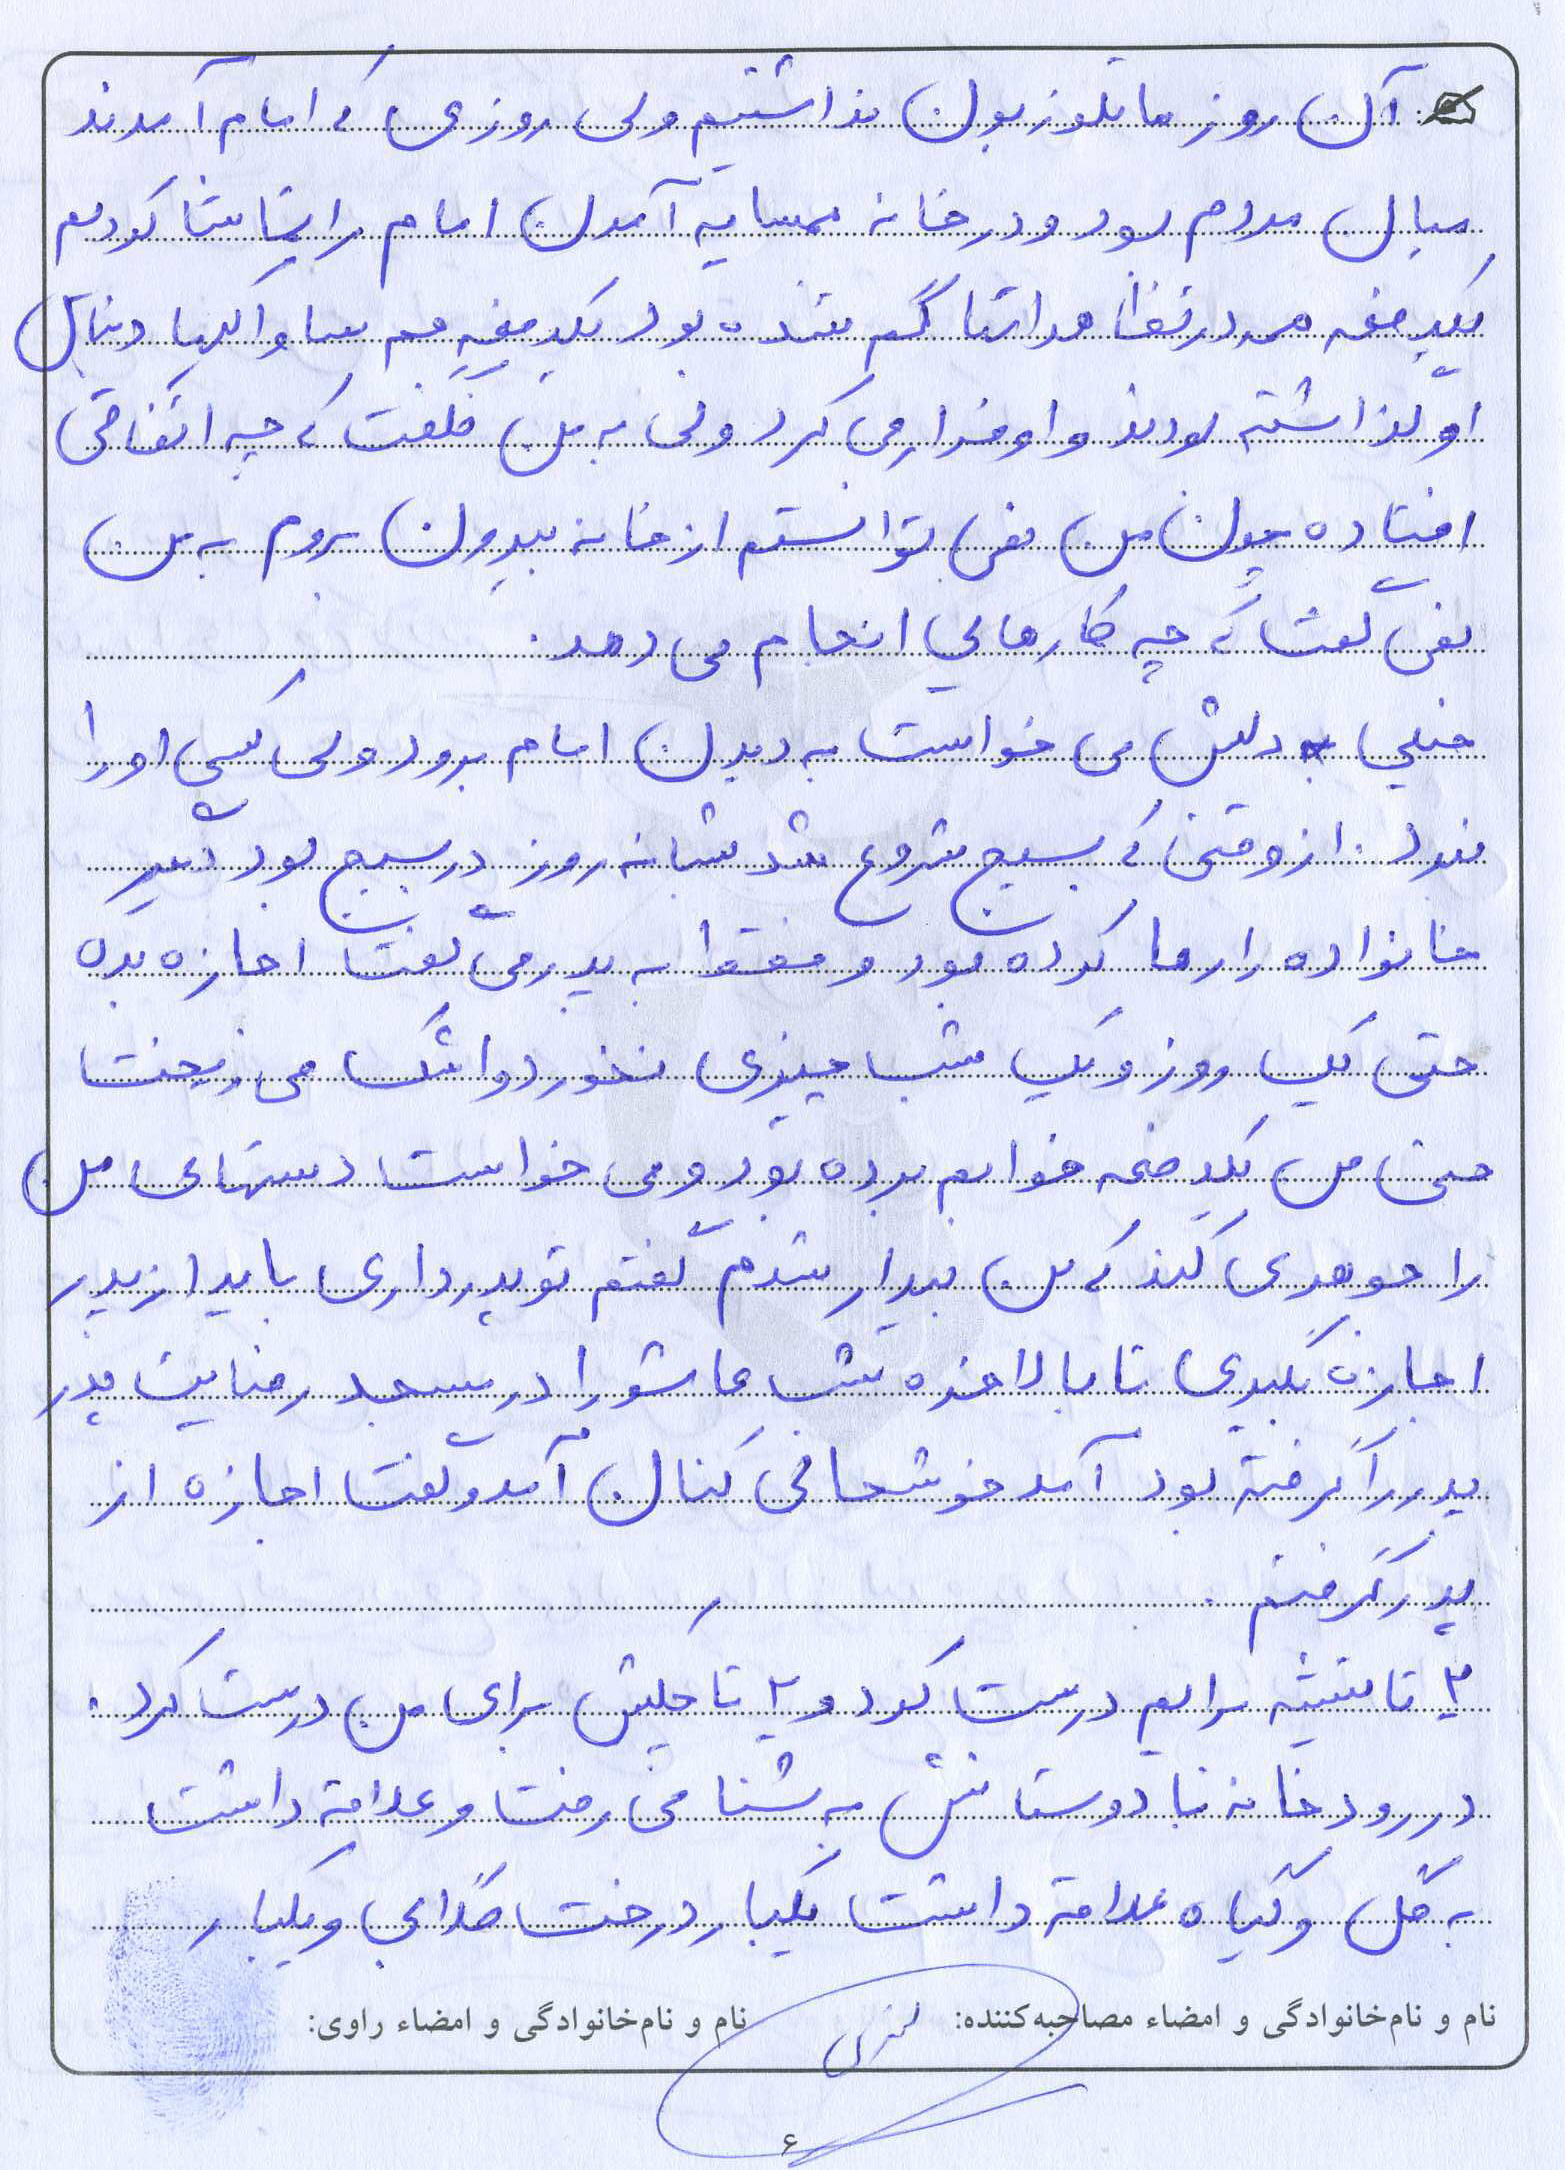 آن روز ما تلوزیون نداشتیم ولی روزی که امام آمدند
مال مردم بود و در خانه همسایه آمدن امام را تماشا کردیم
یکدفعه هم در تظاهراتا گم شده بود یکدفعه هم ساواکیها دنبال
او گذاشته بودند و او فرار می کرد ولی به من نگفت که چه اتفاقی
افتاده چون من نمی توانستم از خانه بیرون بروم به من
نمی گفت که چه کارهایی انجام می دهد.
خیلی دلش می خواست به دیدن امام برود ولی کسی او را
نبرد. از وقتی که بسیج شروع شد شبانه روز در بسیج بود دیگر
خانواده را رها کرده بود و فقط به پدر می گفت اجازه بده
حتی یک روز و یک شب چیزی نخورد و اشک می ریخت
حتی من یکدفعه خوابم برده بود و می خواست دستهای من
را جوهری کند که من بیدار شدم گفتم تو پدر داری باید از پدر
اجازه بگیری تا بالاخره شب عاشورا در مسجد رضایت پدر
پدر را گرفته بود آمد خوشحالی کنان آمد و گفت اجازه از
پدر گرفتم.
۲ تا تیشه برایم درست کرد و ۲ تا چکش برای من درست کرد.
در رودخانه با دوستانش به شنا می رفت و علاقه داشت
به گل و گیاه علاقه داشت یکبار درخت و یکبار
نام و نام‌خانوادگی و امضاء مصاحبه‌کننده:
نام و نام‌خانوادگی و امضاء راوی:
۶